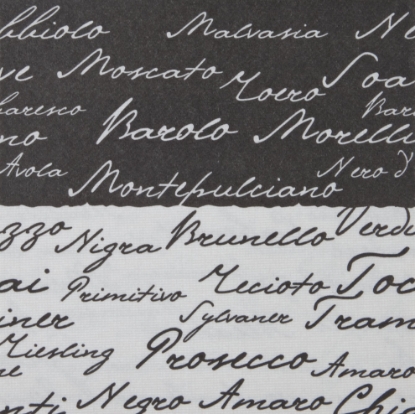 bbiolo Malvasia Ne
ve Moscato Roero Soa
baresco Barolo Morelli Barb
no
Avola Montepulciano Nero d'
zzo Nigra Brunello Verdi
ai Primitivo Recioto Toc
iner Sylvaner Tram
Riesling Prosecco Amaro
ne
nti Negro Amaro Chi